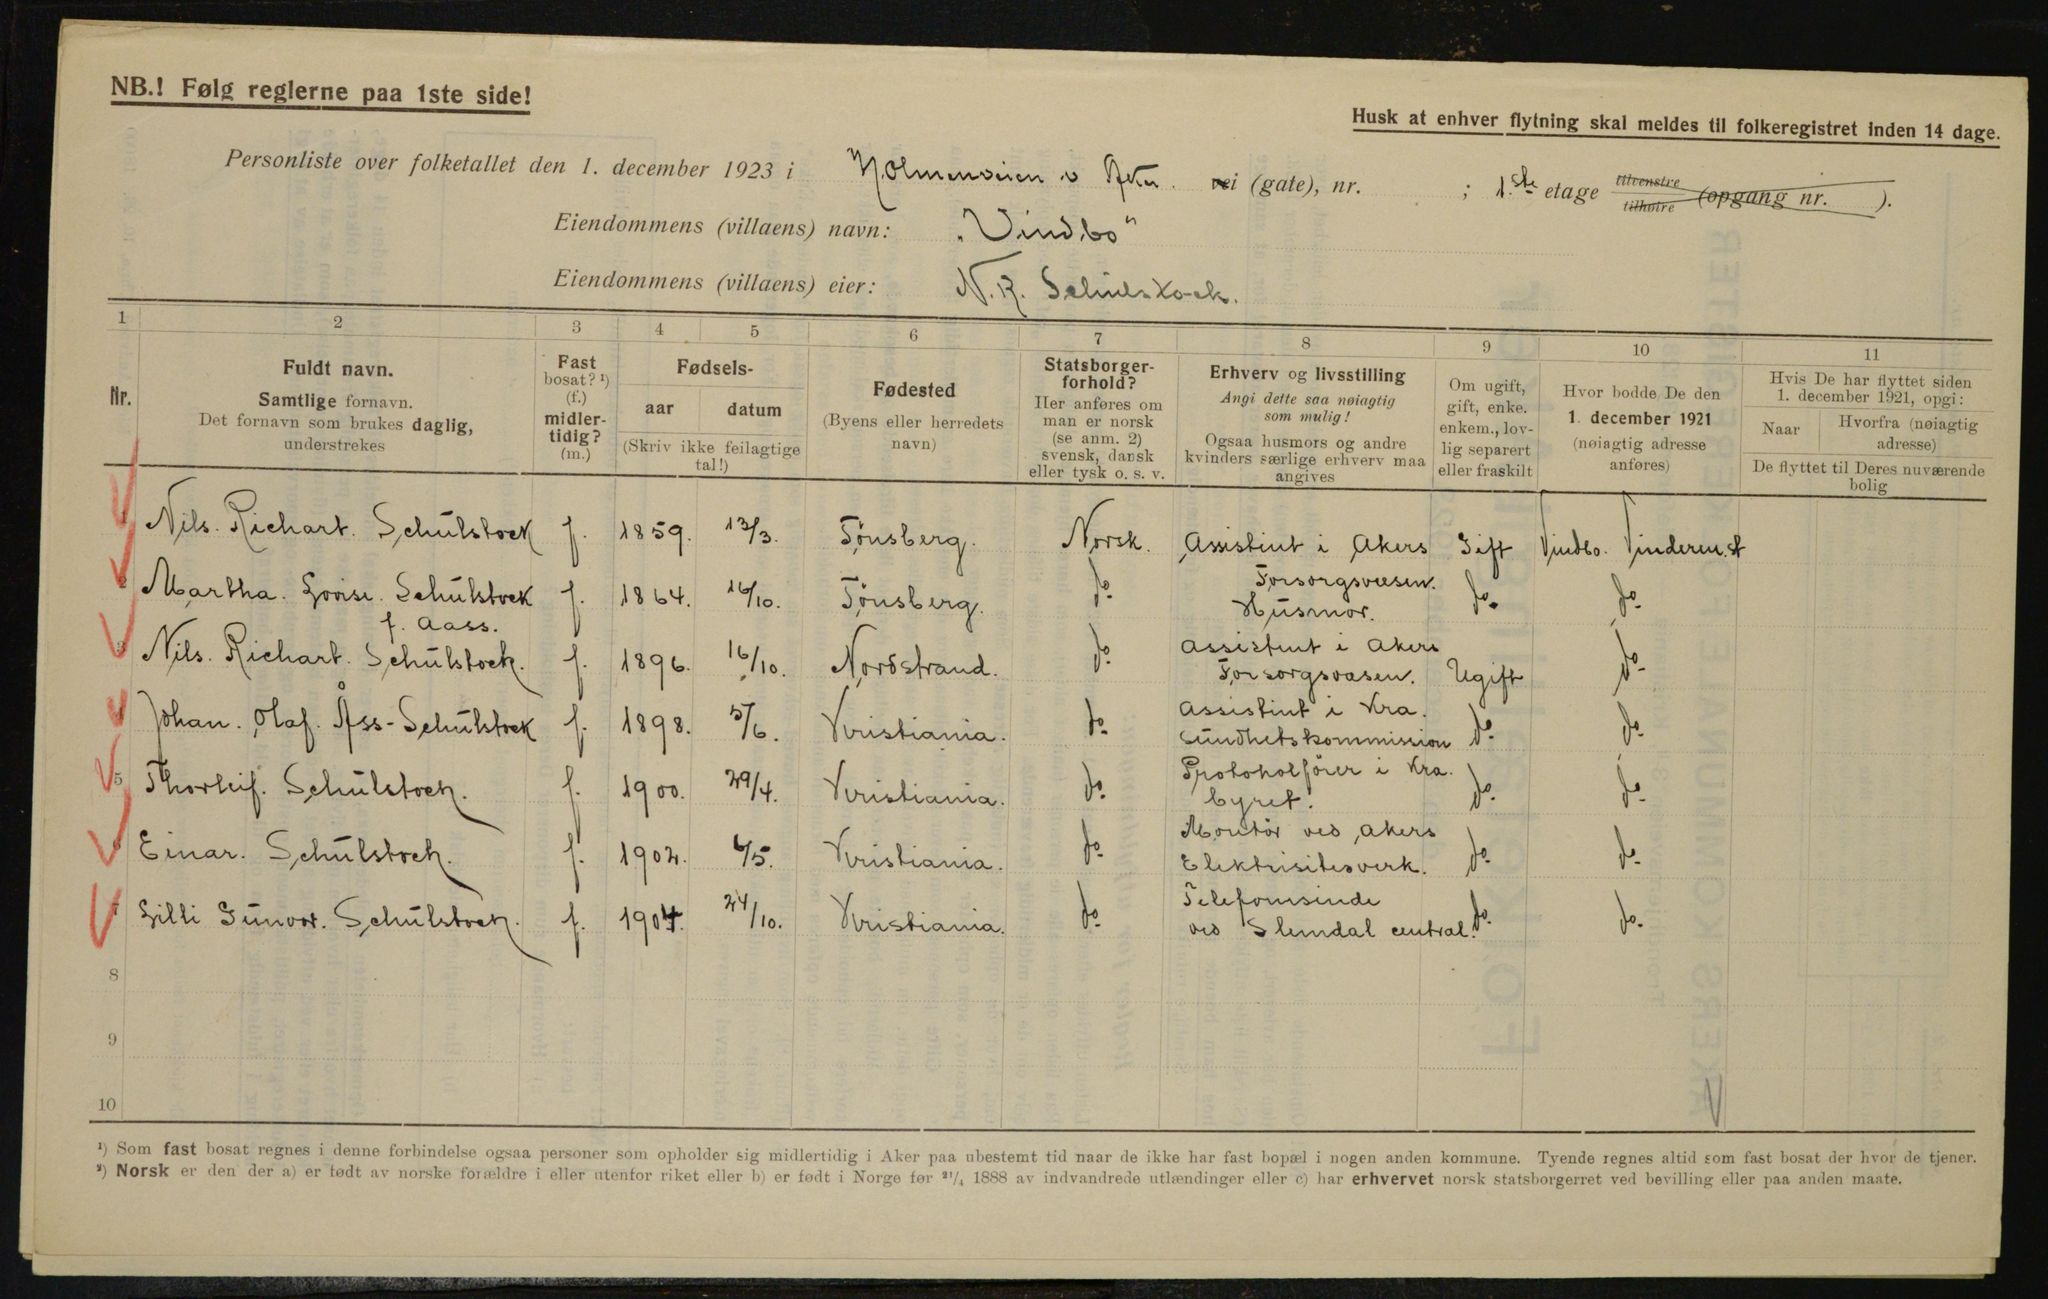 NB.! Følg reglerne paa 1ste side!
Husk at enhver flytning skal meldes til folkeregistret inden 14 dage.
Personliste over folketallet den 1. december 1923 i Holmenveien v. vei (gate), nr. ; 1.ste etage tilvenstre tilhøire (opgang nr. ).
Eiendommens (villaens) navn: „Vindbo"
Eiendommens (villaens) eier: N. R. Schulstock.
1 2 3 4 5 6 7 8 9 10 11
Nr.
Fuldt navn.
Samtlige fornavn.
Det fornavn som brukes daglig,
understrekes
Fast
bosat? ¹)
(f.)
midler-
tidig?
(m.)
Fødsels-
aar datum
(Skriv ikke feilagtige
tal!)
Fødested
(Byens eller herredets
navn)
Statsborger-
forhold?
Her anføres om
man er norsk
(se anm. 2)
svensk, dansk
eller tysk o. s. v.
Erhverv og livsstilling
Angi dette saa nøiagtig
som mulig!
Ogsaa husmors og andre
kvinders særlige erhverv maa
angives
Om ugift,
gift, enke.
enkem., lov-
lig separert
eller fraskilt
Hvor bodde De den
1. december 1921
(nøiagtig adresse
anføres)
Hvis De har flyttet siden
1. december 1921, opgi:
Naar Hvorfra (nøiagtig
adresse)
De flyttet til Deres nuværende
bolig
1 Nils. Richart. Schulstock f. 1859. 13/3. Tønsberg. Norsk. Assistent i Akers Gift Vindbo. Vinderen. st
Forsorgsvæsen.
2 Martha. Lovise. Schulstock f. 1864. 16/10. Tønsberg. do Husmor. do do
f. Aass.
3 Nils. Richart. Schulstock. f. 1896. 16/10. Nordstrand. do Assistent i Akers
Forsorgsvæsen. Ugift do
4 Johan. Olaf. Åss-Schulstock f. 1898. 5/6. Kristiania. do Assistent i Kra.
Sundhetskommission do do
5 Thorleif. Schulstock. f. 1900. 29/4. Kristiania. do Protokolfører i Kra.
byret. do do
6 Einar. Schulstock. f. 1902. 6/5. Kristiania. do Montør ved Akers
Elektrisitesverk. do do
7 Lilli Gunvor. Schulstock. f. 1904. 24/10. Kristiania. do Telefonistinde
ved Slemdal central. do do
8
9
10
¹) Som fast bosat regnes i denne forbindelse ogsaa personer som opholder sig midlertidig i Aker paa ubestemt tid naar de ikke har fast bopæl i nogen anden kommune. Tyende regnes altid som fast bosat der hvor de tjener.
²) Norsk er den der a) er født av norske forældre i eller utenfor riket eller b) er født i Norge før ²¹/₄ 1888 av indvandrede utlændinger eller c) har erhvervet norsk statsborgerret ved bevilling eller paa anden maate.